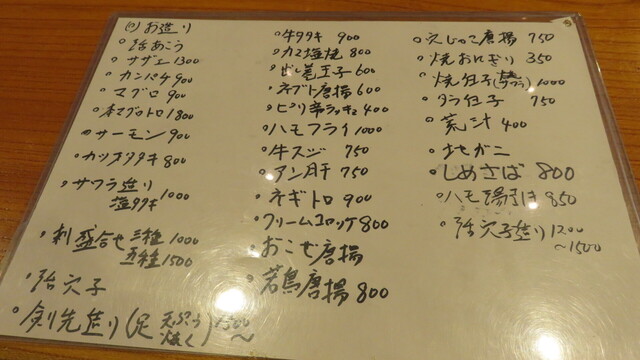 お造り
活あこう
サザエ 1300
カンパチ 900
マグロ 900
本マグロトロ 1800
サーモン 900
カツヲタタキ 800
サワラ造り
塩タタキ 1000
刺盛合せ 三種 1000
五種 1500
活穴子
剣先造り (足 天ぷら 1500
焼く) ～
牛タタキ 900
カマ塩焼 800
だし巻玉子 600
ネブト唐揚 600
ピリ辛ラッキョ 400
ハモフライ 1000
牛スジ 750
アン肝 750
ネギトロ 900
クリームコロッケ 800
おこぜ唐揚
若鳥唐揚 800
えじゃこ唐揚 750
焼おにぎり 350
焼白子 1000
タラ白子 750
荒汁 400
地ガニ
しめさば 800
ハモ湯引き 850
活穴子造り 1200
～1500